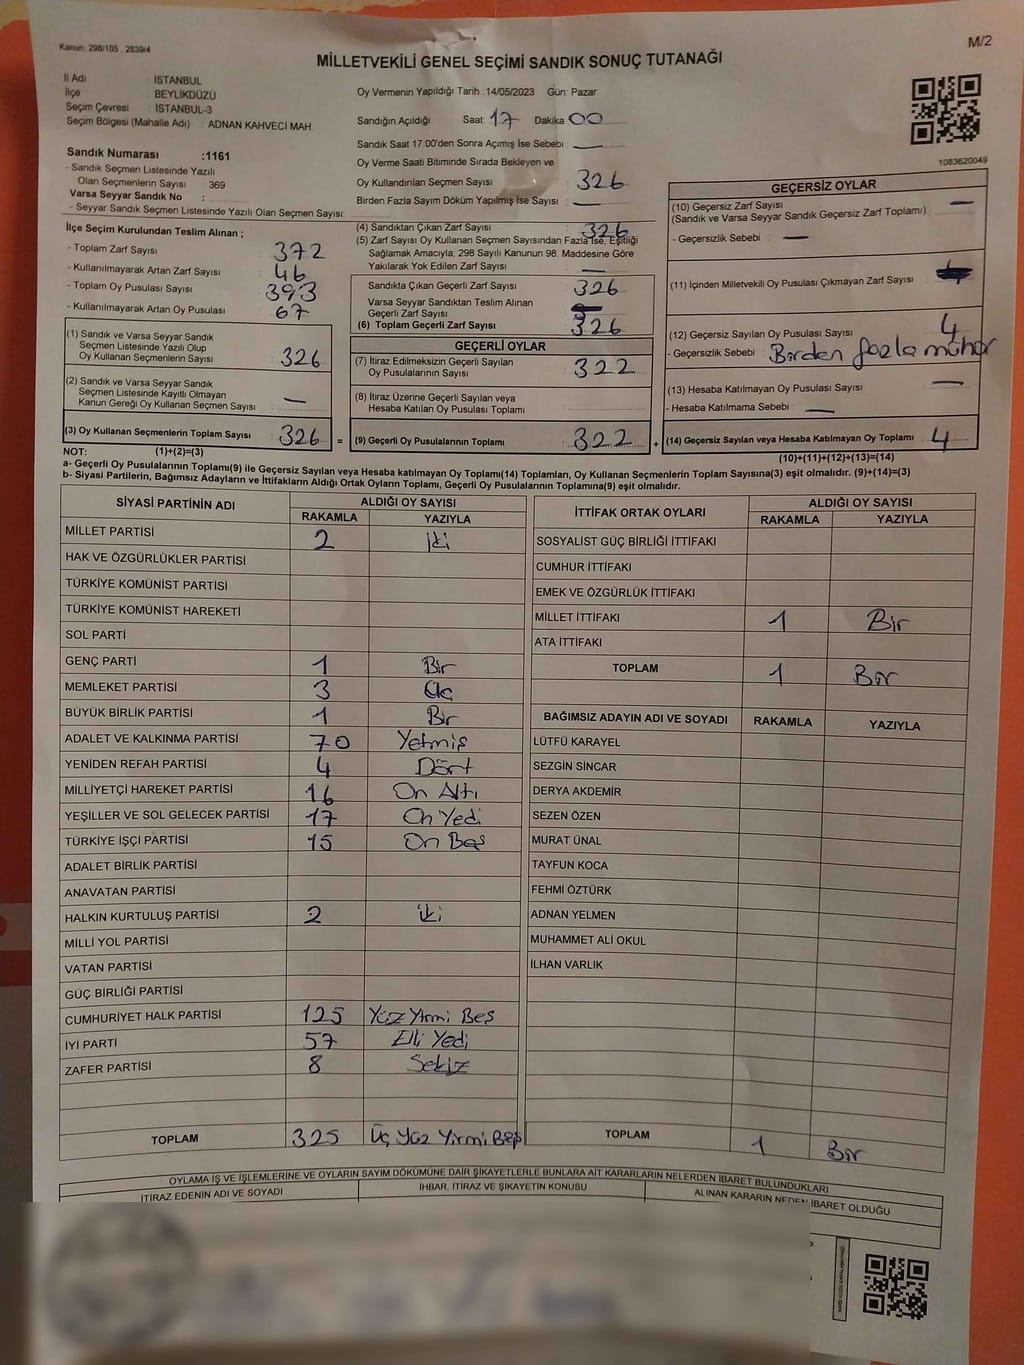 Kanun: 298/105 , 2839/4
M/2
MİLLETVEKİLİ GENEL SEÇİMİ SANDIK SONUÇ TUTANAĞI
İl Adı İSTANBUL
İlçe BEYLİKDÜZÜ
Seçim Çevresi : İSTANBUL-3
Seçim Bölgesi (Mahalle Adı) : ADNAN KAHVECİ MAH
Sandık Numarası :1161
- Sandık Seçmen Listesinde Yazılı
Olan Seçmenlerin Sayısı : 369
Varsa Seyyar Sandık No :
- Seyyar Sandık Seçmen Listesinde Yazılı Olan Seçmen Sayısı:
Oy Vermenin Yapıldığı Tarih :14/05/2023 Gün: Pazar
Sandığın Açıldığı Saat: 17 Dakika 00
Sandık Saat 17:00'den Sonra Açımış İse Sebebi : —
Oy Verme Saati Bitiminde Sırada Bekleyen ve
Oy Kullandırılan Seçmen Sayısı 326
Birden Fazla Sayım Döküm Yapılmış İse Sayısı : —
1083620049
İlçe Seçim Kurulundan Teslim Alınan ;
- Toplam Zarf Sayısı : 372
- Kullanılmayarak Artan Zarf Sayısı : 46
- Toplam Oy Pusulası Sayısı : 393
- Kullanılmayarak Artan Oy Pusulası : 67
(1) Sandık ve Varsa Seyyar Sandık
Seçmen Listesinde Yazılı Olup
Oy Kullanan Seçmenlerin Sayısı : 326
(2) Sandık ve Varsa Seyyar Sandık
Seçmen Listesinde Kayıtlı Olmayan
Kanun Gereği Oy Kullanan Seçmen Sayısı : —
(3) Oy Kullanan Seçmenlerin Toplam Sayısı : 326 =
(4) Sandıktan Çıkan Zarf Sayısı : 326
(5) Zarf Sayısı Oy Kullanan Seçmen Sayısından Fazla İse, Eşitliği
Sağlamak Amacıyla, 298 Sayılı Kanunun 98. Maddesine Göre
Yakılarak Yok Edilen Zarf Sayısı : —
Sandıkta Çıkan Geçerli Zarf Sayısı : 326
Varsa Seyyar Sandıktan Teslim Alınan
Geçerli Zarf Sayısı :
(6) Toplam Geçerli Zarf Sayısı : 326
GEÇERLİ OYLAR
(7) İtiraz Edilmeksizin Geçerli Sayılan
Oy Pusulalarının Sayısı : 322
(8) İtiraz Üzerine Geçerli Sayılan veya
Hesaba Katılan Oy Pusulası Toplamı :
(9) Geçerli Oy Pusulalarının Toplamı : 322 +
GEÇERSİZ OYLAR
(10) Geçersiz Zarf Sayısı : —
(Sandık ve Varsa Seyyar Sandık Geçersiz Zarf Toplamı)
- Geçersizlik Sebebi : —
(11) İçinden Milletvekili Oy Pusulası Çıkmayan Zarf Sayısı :
(12) Geçersiz Sayılan Oy Pusulası Sayısı : 4
- Geçersizlik Sebebi : Birden fazla mühür
(13) Hesaba Katılmayan Oy Pusulası Sayısı : —
- Hesaba Katılmama Sebebi : —
(14) Geçersiz Sayılan veya Hesaba Katılmayan Oy Toplamı : 4
NOT: (1)+(2)=(3)
(10)+(11)+(12)+(13)=(14)
a- Geçerli Oy Pusulalarının Toplamı(9) ile Geçersiz Sayılan veya Hesaba katılmayan Oy Toplamı(14) Toplamları, Oy Kullanan Seçmenlerin Toplam Sayısına(3) eşit olmalıdır. (9)+(14)=(3)
b- Siyasi Partilerin, Bağımsız Adayların ve İttifakların Aldığı Ortak Oyların Toplamı, Geçerli Oy Pusulalarının Toplamına(9) eşit olmalıdır.
SİYASİ PARTİNİN ADI ALDIĞI OY SAYISI
RAKAMLA YAZIYLA
MİLLET PARTİSİ 2 İki
HAK VE ÖZGÜRLÜKLER PARTİSİ
TÜRKİYE KOMÜNİST PARTİSİ
TÜRKİYE KOMÜNİST HAREKETİ
SOL PARTİ
GENÇ PARTİ 1 Bir
MEMLEKET PARTİSİ 3 Üç
BÜYÜK BİRLİK PARTİSİ 1 Bir
ADALET VE KALKINMA PARTİSİ 70 Yetmiş
YENİDEN REFAH PARTİSİ 4 Dört
MİLLİYETÇİ HAREKET PARTİSİ 16 On Altı
YEŞİLLER VE SOL GELECEK PARTİSİ 17 On Yedi
TÜRKİYE İŞÇİ PARTİSİ 15 On Beş
ADALET BİRLİK PARTİSİ
ANAVATAN PARTİSİ
HALKIN KURTULUŞ PARTİSİ 2 İki
MİLLİ YOL PARTİSİ
VATAN PARTİSİ
GÜÇ BİRLİĞİ PARTİSİ
CUMHURİYET HALK PARTİSİ 125 Yüz Yirmi Beş
İYİ PARTİ 57 Elli Yedi
ZAFER PARTİSİ 8 Sekiz
TOPLAM 325 Üç Yüz Yirmi Beş
İTTİFAK ORTAK OYLARI ALDIĞI OY SAYISI
RAKAMLA YAZIYLA
SOSYALİST GÜÇ BİRLİĞİ İTTİFAKI
CUMHUR İTTİFAKI
EMEK VE ÖZGÜRLÜK İTTİFAKI
MİLLET İTTİFAKI 1 Bir
ATA İTTİFAKI
TOPLAM 1 Bir
BAĞIMSIZ ADAYIN ADI VE SOYADI RAKAMLA YAZIYLA
LÜTFÜ KARAYEL
SEZGİN SİNCAR
DERYA AKDEMİR
SEZEN ÖZEN
MURAT ÜNAL
TAYFUN KOCA
FEHMİ ÖZTÜRK
ADNAN YELMEN
MUHAMMET ALİ OKUL
İLHAN VARLIK
TOPLAM 1 Bir
OYLAMA İŞ VE İŞLEMLERİNE VE OYLARIN SAYIM DÖKÜMÜNE DAİR ŞİKAYETLERLE BUNLARA AİT KARARLARIN NELERDEN İBARET BULUNDUKLARI
İTİRAZ EDENİN ADI VE SOYADI İHBAR, İTİRAZ VE ŞİKAYETİN KONUSU ALINAN KARARIN NEDEN İBARET OLDUĞU